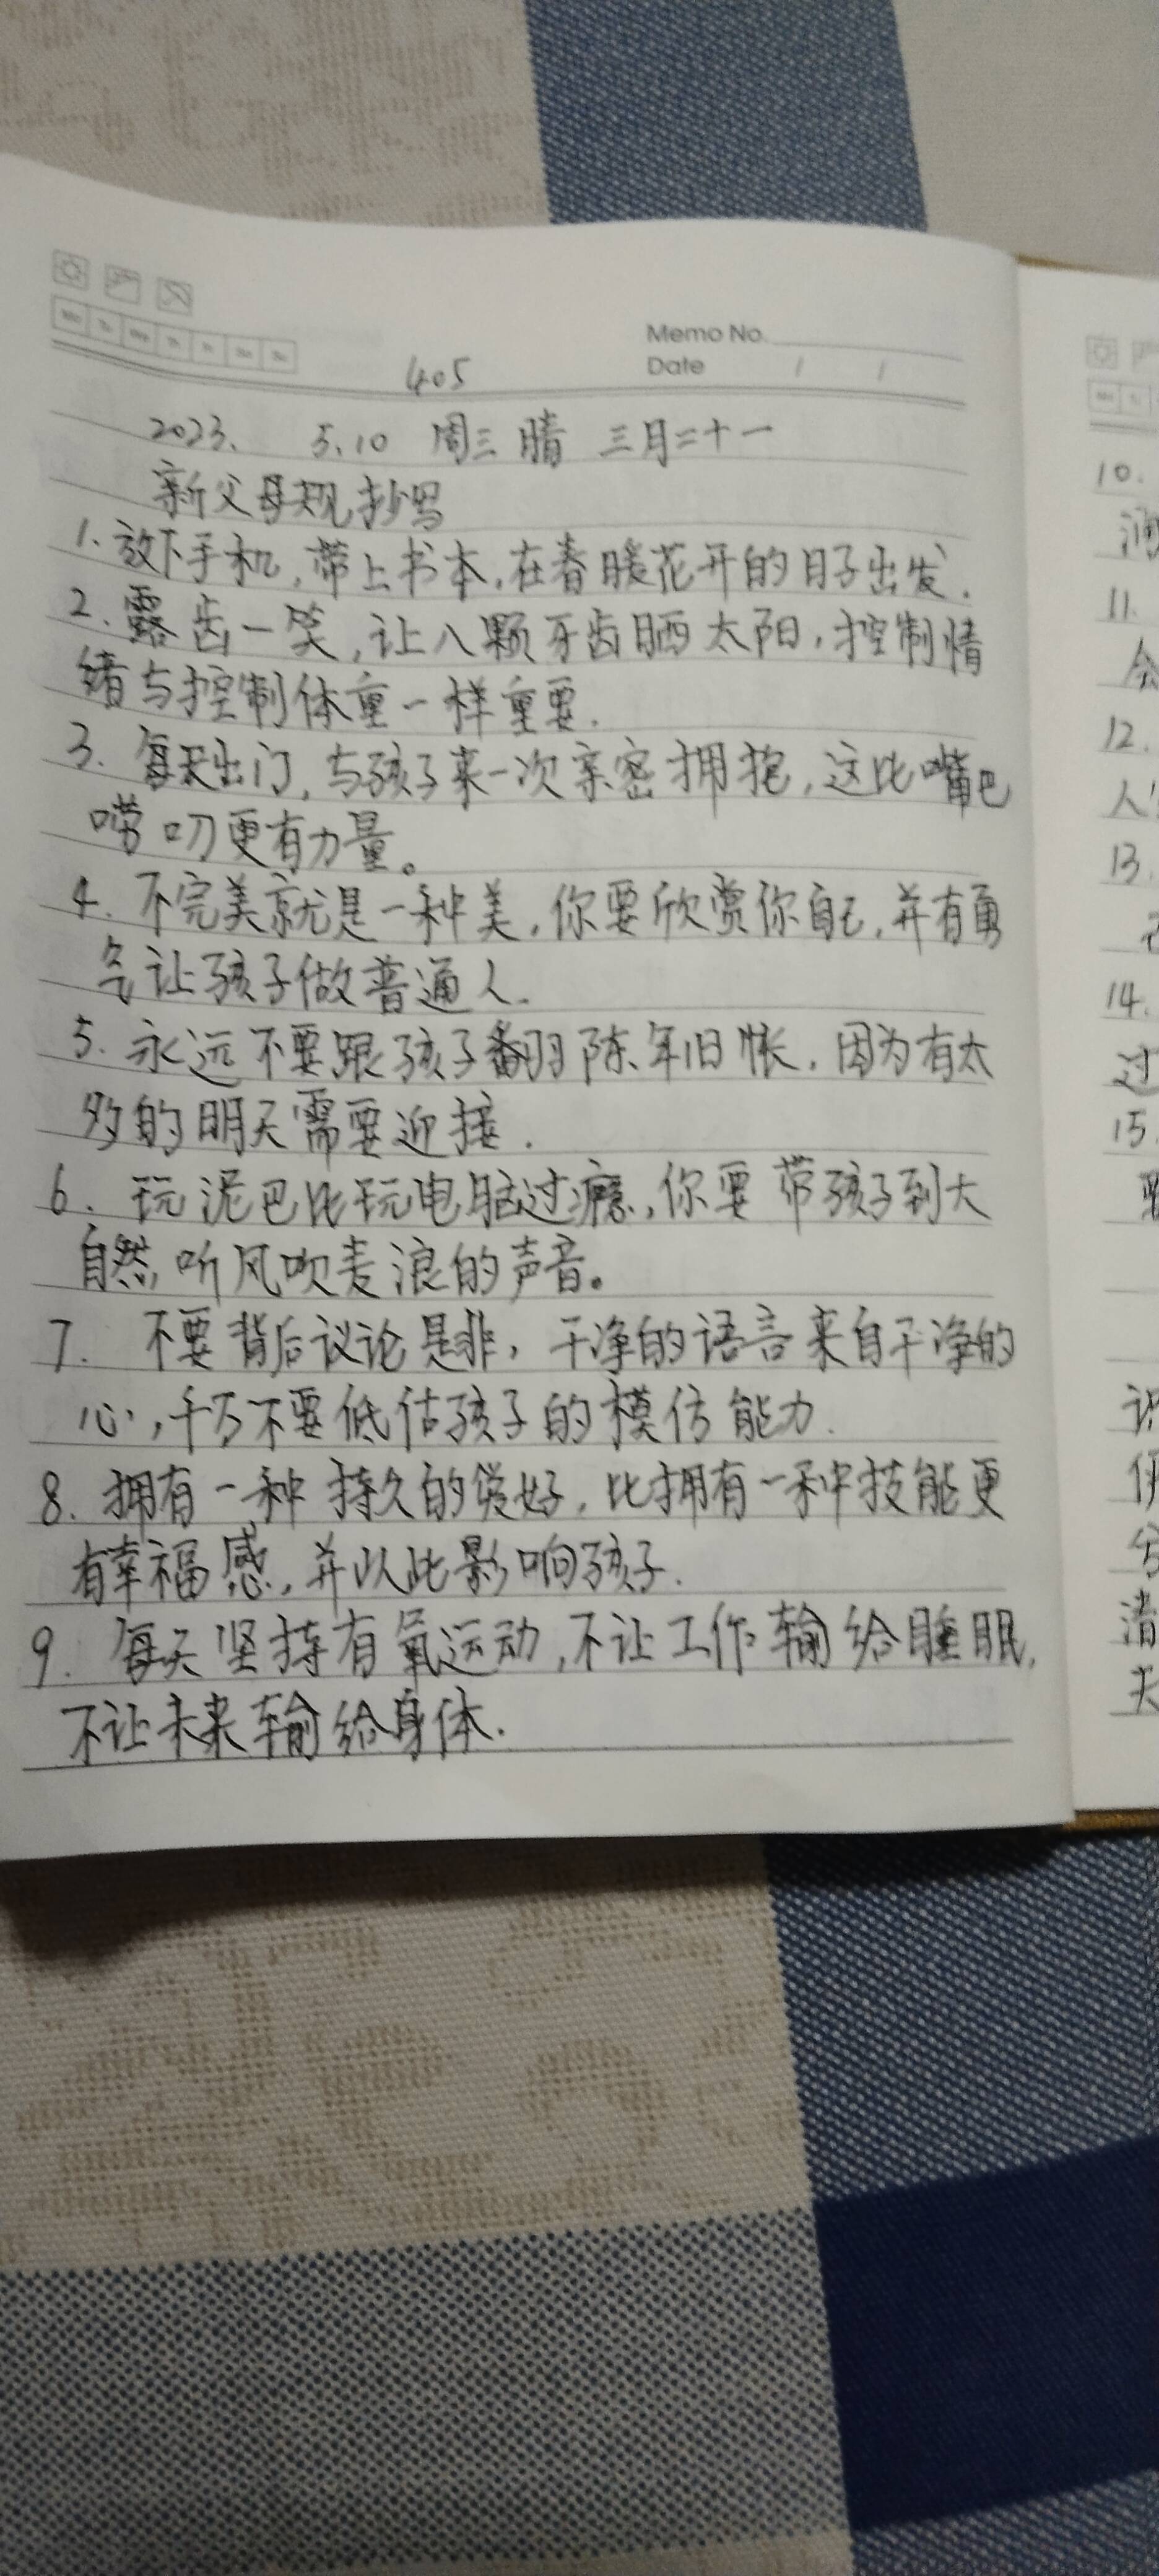 Mo Tu We Th Fr Sa Su
Memo No.
Date / /
405
2023. 5.10 周三 晴 三月二十一
新父母规抄写
1.放下手机,带上书本,在春暖花开的日子出发.
2.露齿一笑,让八颗牙齿晒太阳,控制情
绪与控制体重一样重要.
3.每天出门,与孩子来一次亲密拥抱,这比嘴巴
唠叨更有力量。
4.不完美就是一种美,你要欣赏你自己,并有勇
气让孩子做普通人.
5.永远不要跟孩子翻陈年旧帐,因为有太
多的明天需要迎接.
6.玩泥巴比玩电脑过瘾,你要带孩子到大
自然,听风吹麦浪的声音。
7.不要背后议论是非,干净的语言来自干净的
心,千万不要低估孩子的模仿能力.
8.拥有一种持久的爱好,比拥有一种技能更
有幸福感,并以此影响孩子.
9.每天坚持有氧运动,不让工作输给睡眠,
不让未来输给身体.
10.
11.
12.
人
13.
14.
过
15.